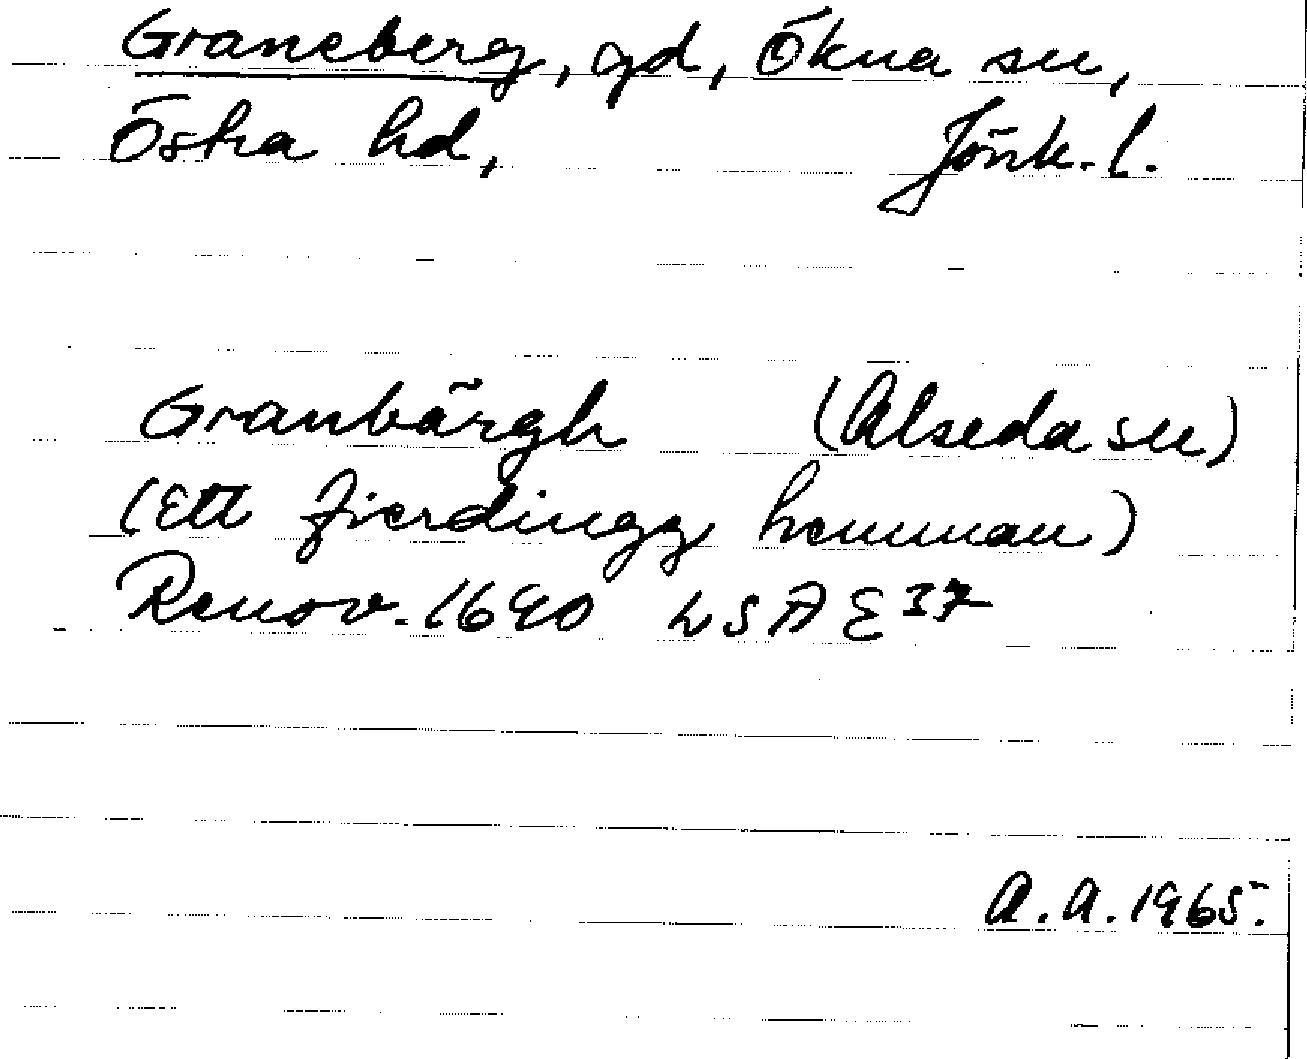 Graneberg, gd, Ökna sn,
Östra hd, Jönk. l.
Granbärgh (Alseda sn)
(Ett fierdingz hemman)
Renov. 1690 LSA E37
A.A. 1965.